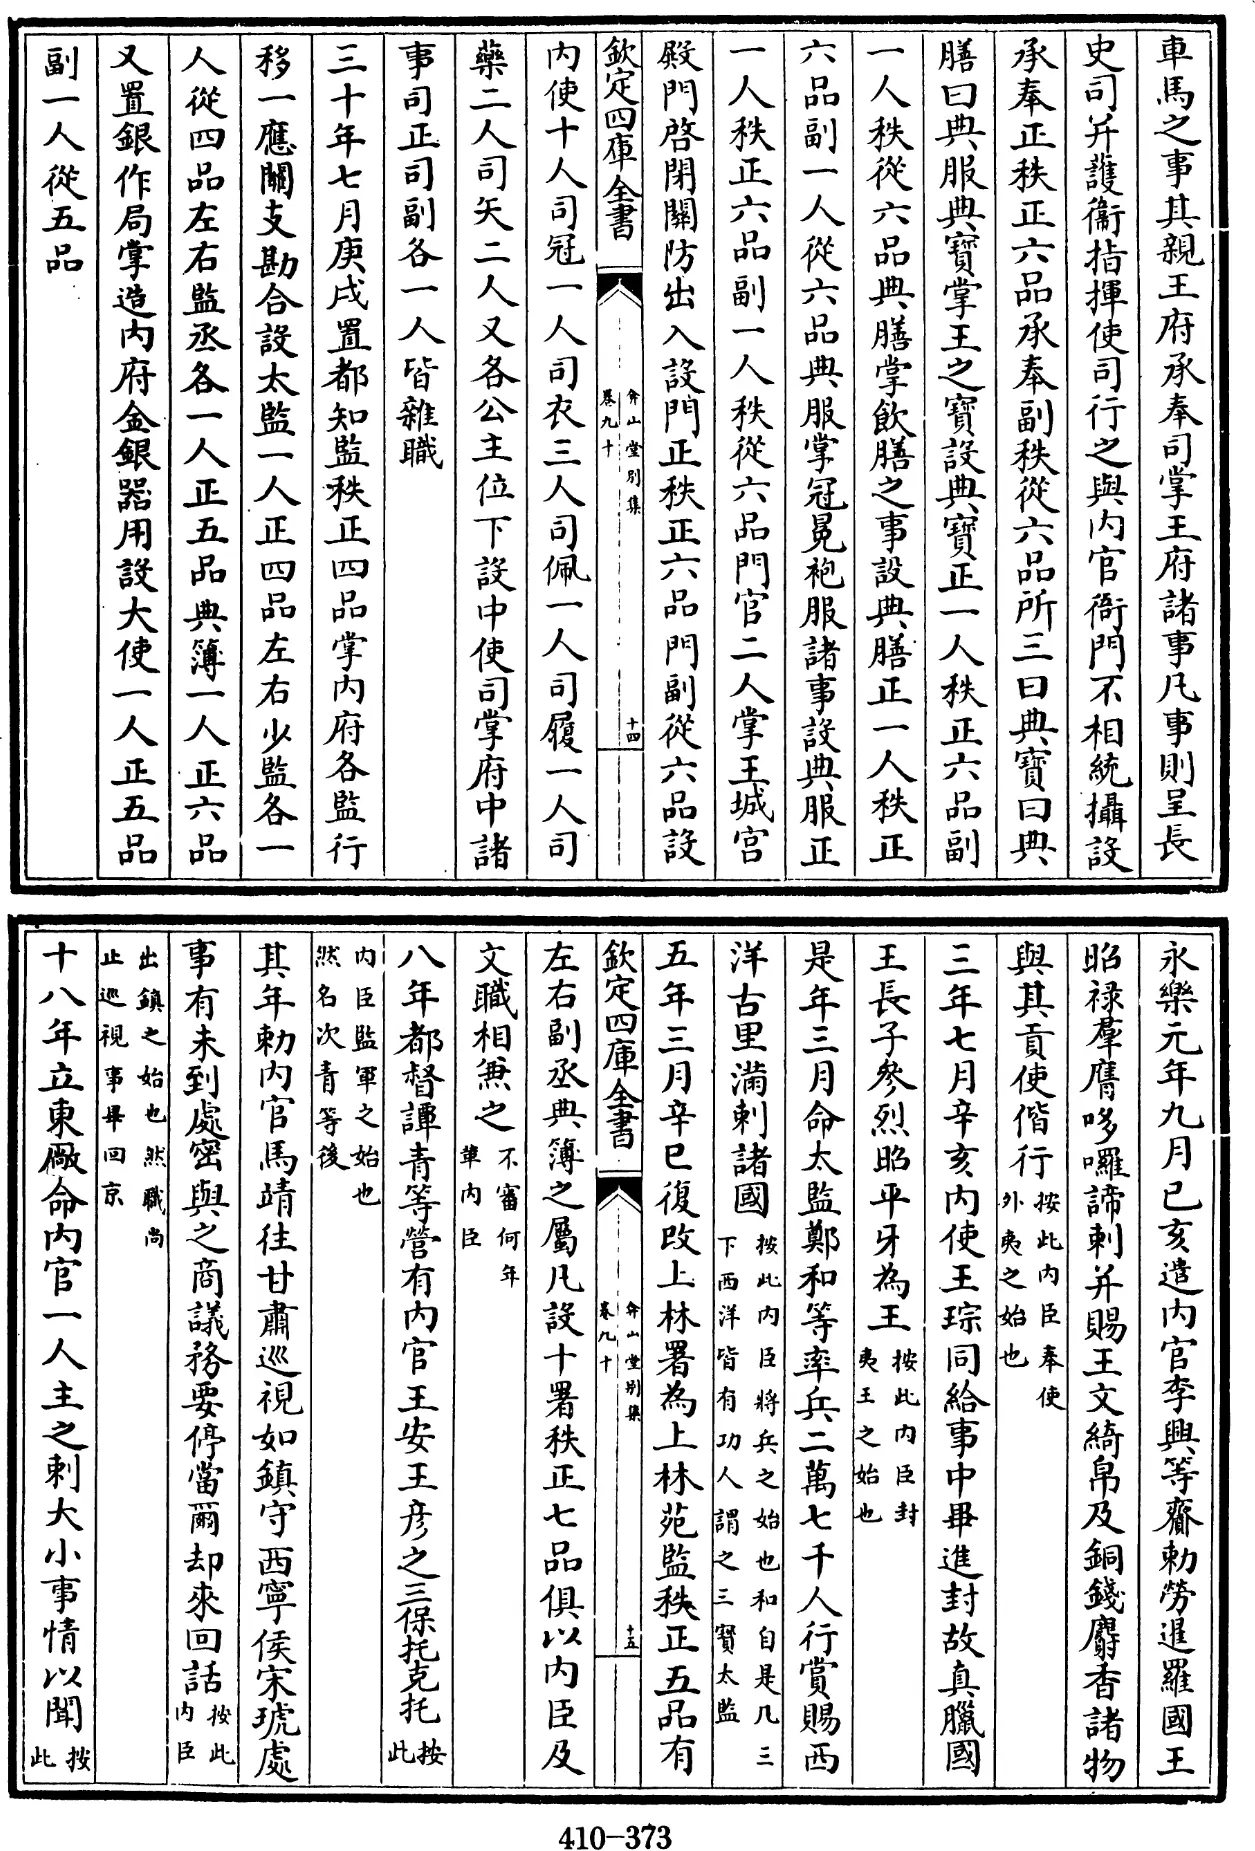 車馬之事其親王府承奉司掌王府諸事凡事則呈長
史司并護衞指揮使司行之與内官衙門不相統攝設
承奉正秩正六品承奉副秩從六品所三曰典寶曰典
膳曰典服典寶掌王之寶設典寶正一人秩正六品副
一人秩從六品典膳掌飲膳之事設典膳正一人秩正
六品副一人從六品典服掌冠冕袍服諸事設典服正
一人秩正六品副一人秩從六品門官二人掌王城宫
殿門啓閉關防出入設門正秩正六品門副從六品設
欽定四庫全書
弇山堂别集
卷九十
十四
内使十人司冠一人司衣三人司佩一人司履一人司
藥二人司矢二人又各公主位下設中使司掌府中諸
事司正司副各一人皆雜職
三十年七月庚戌置都知監秩正四品掌内府各監行
移一應關支勘合設太監一人正四品左右少監各一
人從四品左右監丞各一人正五品典簿一人正六品
又置銀作局掌造内府金銀器用設大使一人正五品
副一人從五品
永樂元年九月己亥遣内官李興等齎勅勞暹羅國王
昭祿羣膺哆囉諦剌并賜王文綺帛及銅錢麝香諸物
與其貢使偕行按此内臣奉使
外夷之始也
三年七月辛亥内使王琮同給事中畢進封故真臘國
王長子參烈昭平牙為王按此内臣封
夷王之始也
是年三月命太監鄭和等率兵二萬七千人行賞賜西
洋古里滿剌諸國按此内臣將兵之始也和自是凡三
下西洋皆有功人謂之三寳太監
五年三月辛巳復改上林署為上林苑監秩正五品有
欽定四庫全書
弇山堂别集
卷九十
十五
左右副丞典簿之屬凡設十署秩正七品俱以内臣及
文職相兼之不審何年
革内臣
八年都督譚青等營有内官王安王彦之三保托克托按
此
内臣監軍之始也
然名次青等後
其年勅内官馬靖往甘肅巡視如鎮守西寧侯宋琥處
事有未到處密與之商議務要停當爾却來回話按此
内臣
出鎮之始也然職尚
止巡視事畢回京
十八年立東廠命内官一人主之刺大小事情以聞按
此
410-373